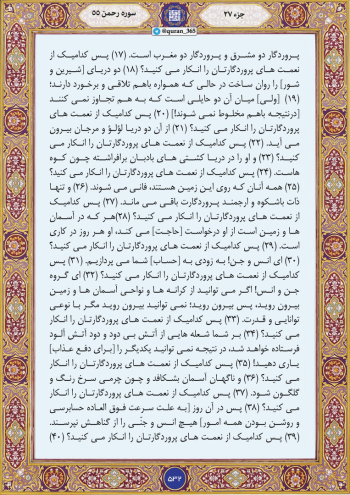 جزء ۲۷
سوره رحمن ۵۵
@quran_365
پـروردگار دو مشـرق و پـروردگار دو مغـرب اسـت. (۱۷) پـس کدامیـک از
نعمـت هـای پروردگارتـان را انـکار مـی کنیـد؟ (۱۸) دو دریـای [شـیرین و
شور] را روان ساخت در حالـی کـه همـواره باهم تلاقـی و برخورد دارنـد؛
(۱۹) [ولـی] میـان آن دو حایلـی اسـت کـه بـه هـم تجـاوز نمـی کننـد
[درنتیجه باهـم مخلـوط نمـی شـوند!] (۲۰) پـس کدامیـک از نعمـت هـای
پروردگارتان را انکار می کنید؟ (۲۱) از آن دو دریا لؤلؤ و مرجان بیرون
مـی آیـد. (۲۲) پـس کدامیـک از نعمـت هـای پروردگارتان را انـکار مـی
کنیـد؟ (۲۳) و او را در دریـا کشـتی هـای بادبـان برافراشـته چـون کـوه
هاست. (۲۴) پس کدامیک از نعمت های پروردگارتان را انکار می کنید؟
(۲۵) همه آنان که روی این زمین هستند، فانی می شوند. (۲۶) و تنها
ذات باشـکوه و ارجمنـد پـروردگارت باقـی مـی مانـد. (۲۷) پـس کدامیـک
از نعمـت هـای پروردگارتـان را انـکار مـی کنیـد؟ (۲۸)هـر کـه در آسـمان
هـا و زمیـن اسـت از او درخواسـت [حاجـت] مـی کند، او هـر روز در کاری
است. (۲۹) پس کدامیک از نعمت های پروردگارتان را انکار می کنید؟
(۳۰) ای انس و جن! به زودی به [حساب] شما می پردازیم. (۳۱) پس
کدامیک از نعمت های پروردگارتان را انکار می کنید؟ (۳۲) ای گروه
جـن و انـس! اگـر مـی توانیـد از کرانـه هـا و نواحـی آسـمان هـا و زمیـن
بیـرون رویـد، پـس بیـرون رویـد؛ نمـی توانیـد بیـرون رویـد مگـر بـا نوعـی
توانایـی و قـدرت. (۳۳) پـس کدامیـک از نعمـت هـای پروردگارتـان را انـکار
مـی کنیـد؟ (۳۴) بـر شـما شـعله هایـی از آتـش بـی دود و دود آتـش آلـود
فرسـتاده خواهـد شـد، در نتیجـه نمـی توانیـد یکدیگـر را [بـرای دفـع عذاب]
یـاری دهیـد! (۳۵) پـس کدامیـک از نعمـت هـای پروردگارتـان را انـکار
مـی کنیـد؟ (۳۶) و ناگهـان آسـمان بشـکافد و چـون چرمـی سـرخ رنـگ و
گلگـون شـود. (۳۷) پـس کدامیـک از نعمـت هـای پروردگارتـان را انـکار
مـی کنیـد؟ (۳۸) پـس در آن روز [بـه علـت سـرعت فـوق العـاده حسابرسـی
و روشـن بـودن همـه امـور] هیـچ انـس و جنّـی را از گناهـش نپرسـند.
(۳۹) پس کدامیک از نعمت های پروردگارتان را انکار می کنید؟ (۴۰)
۵۳۲